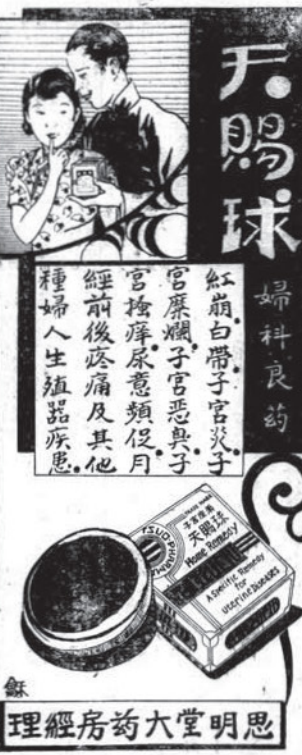 天賜球
婦科良药
紅崩白帶子宮炎子
宮糜爛子宮惡臭子
宮搔癢尿意頻促月
經前後疼痛及其他
種婦人生殖器疾患
天賜球
Home Remedy
A Simific Remedy
for
Uterine Diseases
思明堂大药房經理